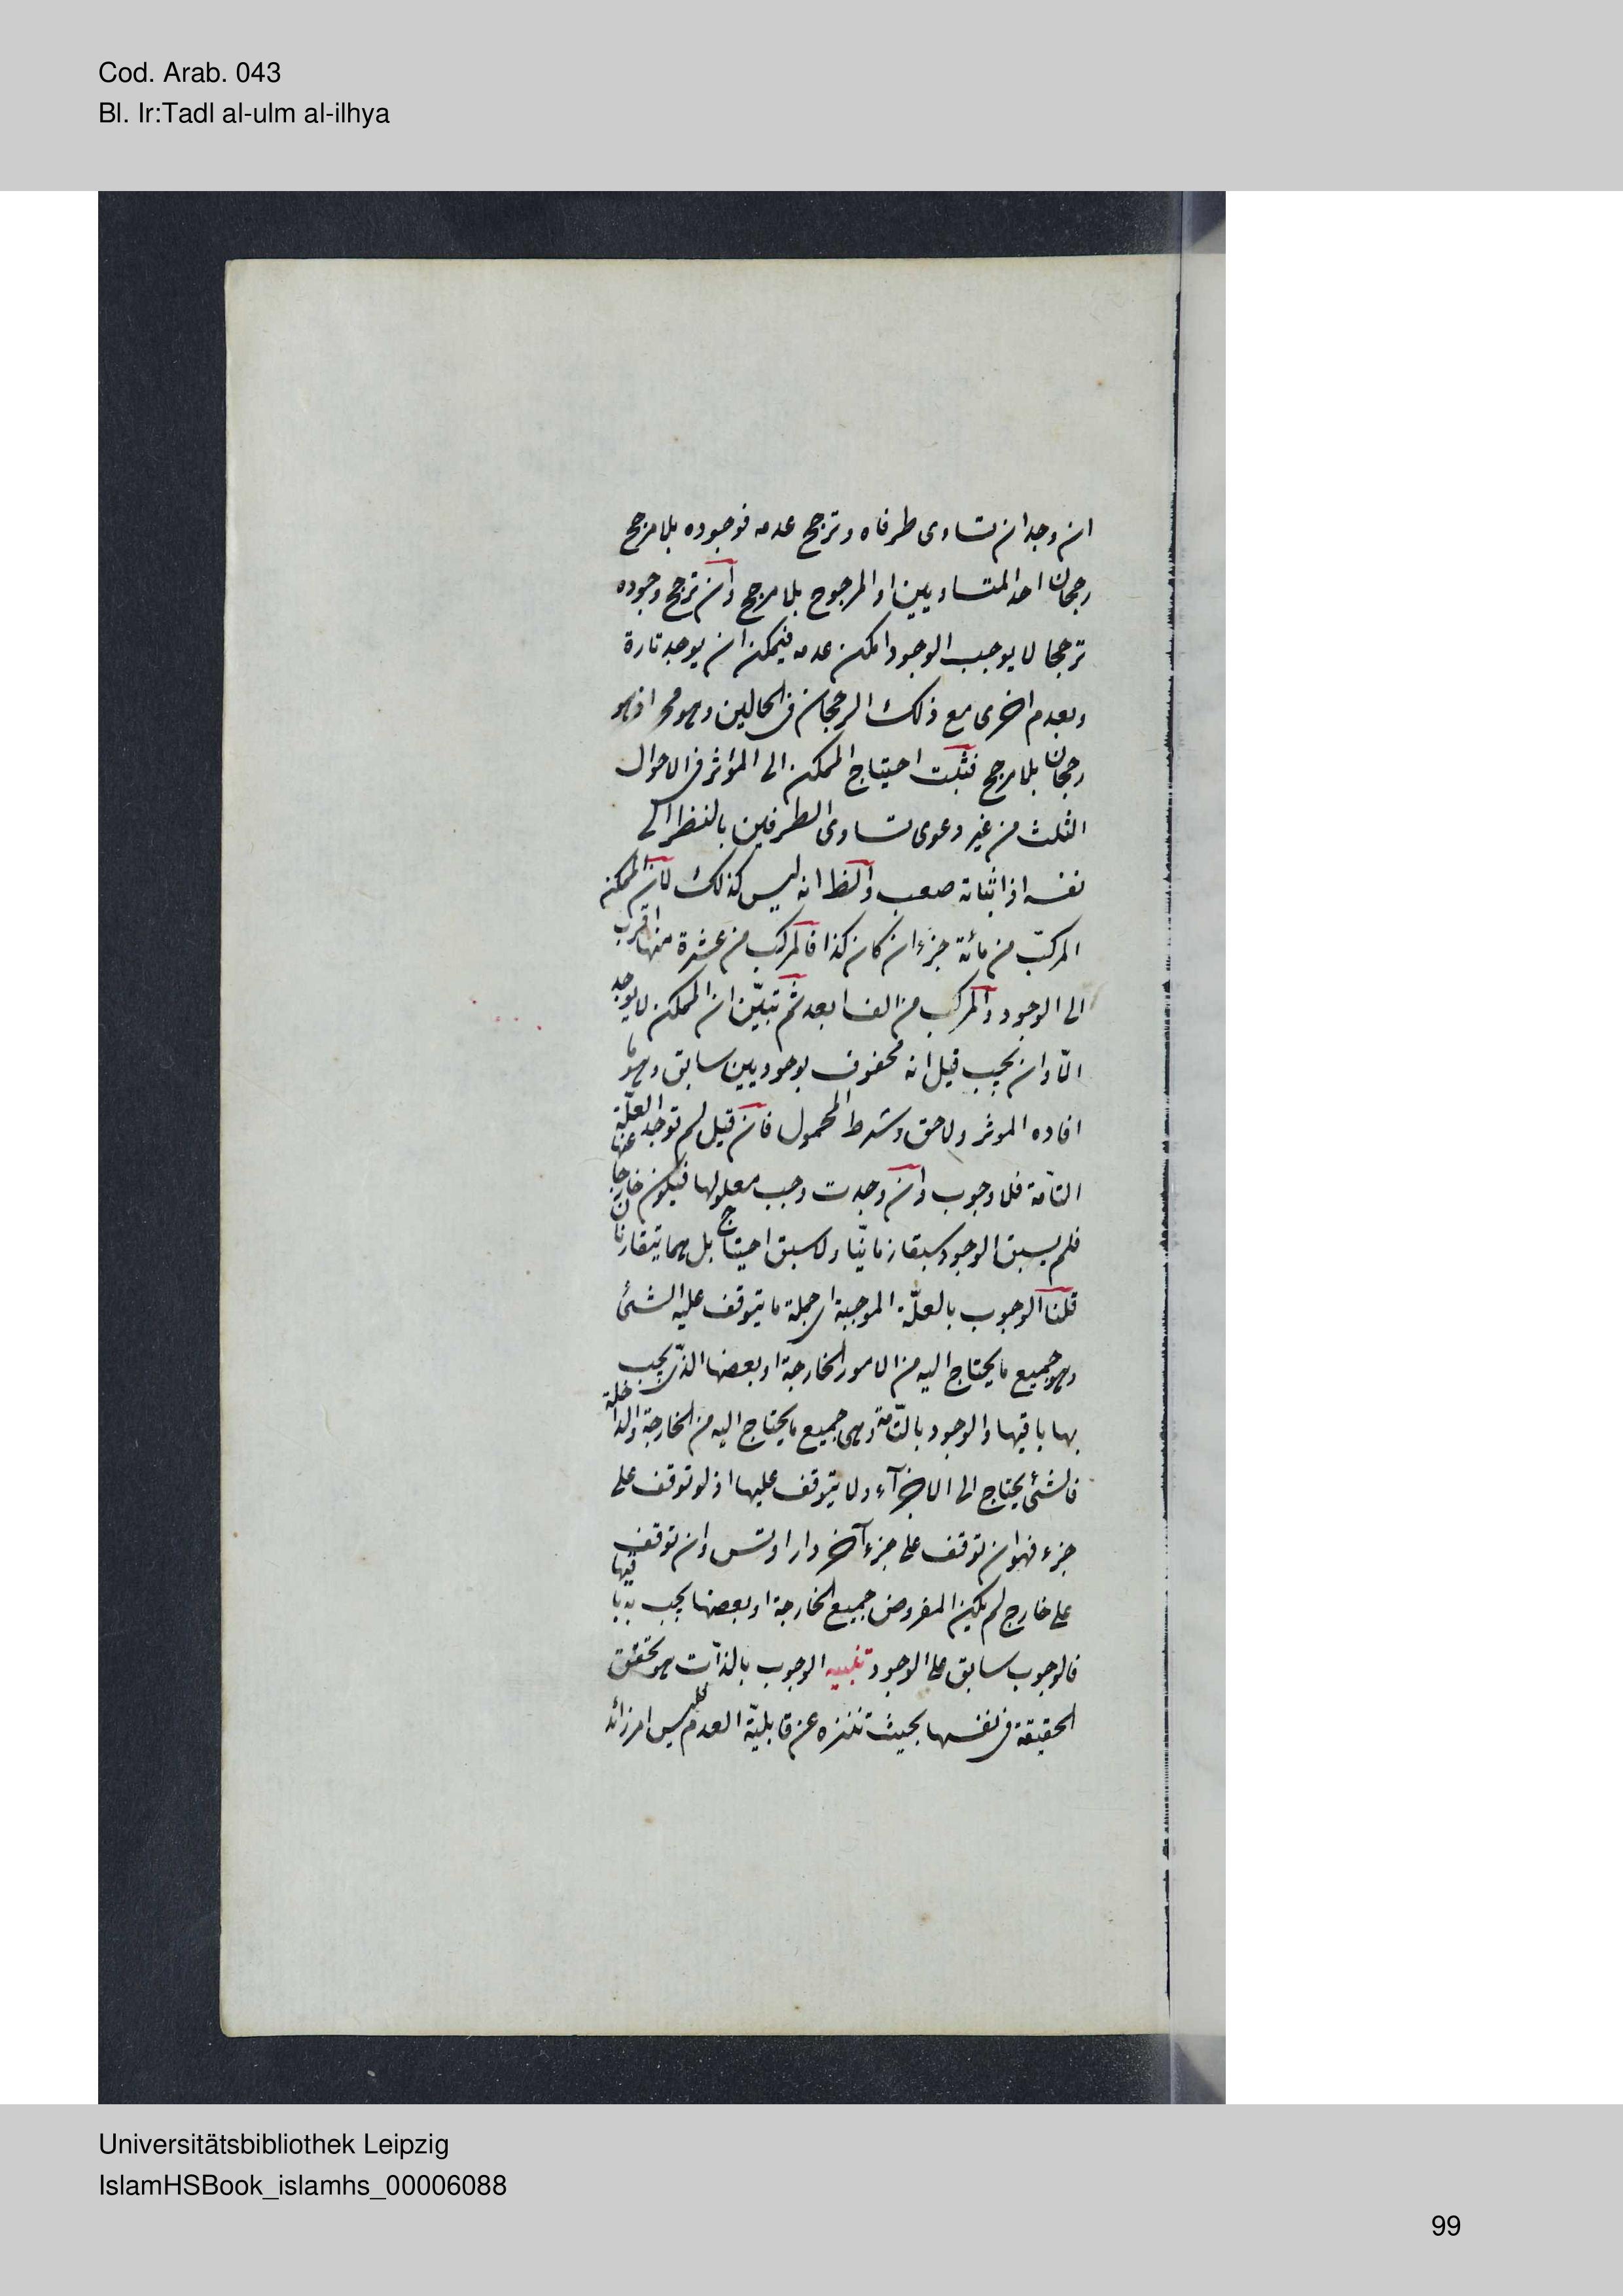 Cod. Arab. 043
Bl. Ir:Tadl al-ulm al-ilhya
ان وجد ان تساوى طرفاه وترجح عدمه فوجوده بلا مرجح
رجحان احد المتساويين او المرجوح بلا مرجح وان ترجح وجوده
ترجحا لا يوجب الوجود امكن عدمه فيمكن ان يوجد تارة
ويعدم اخرى مع ذلك الرجحان فى الحالين وهو مح اذ هو
رجحان بلا مرجح فثبت احتياج الممكن الى المؤثر فى الاحوال
الثلث من غير دعوى تساوى الطرفين بالنظر الى
نفسه اذ اثباته صعب والظ انه ليس كذلك لان الممكن
المركب من مائة جزء ان كان كذا فالمركب من عشرة منها اقرب
الى الوجود والمركب من الف ابعد ثم تبيّن ان الممكن لا يوجد
الّا وان يجب قيل انه محفوف بوجوبين سابق وهو ما
افاده الموثر ولاحق وشرط المحمول فان قيل لم توجد العلّة
التامّة فلا وجوب وان وجدت وجب معلولها فيكون خارجا عنها
فلم يسبق الوجود سبقا زمانيّا ولا سبق احتياج بل هما يتقارنان
قلنا الوجوب بالعلّة الموجبة اى جملة ما يتوقف عليه الشئ
وهو جميع ما يحتاج اليه من الامور الخارجة او بعضها الذى يجب
بها باقيها والوجود بالتامّة وهى جميع ما يحتاج اليه من الخارجة والداخلة
فالشئ يحتاج الى الاجزاء ولا يتوقف عليها اذ لو توقف على
جزء فهو ان توقف على جزء آخر دار او تس وان توقف
على خارج لم يكن المفروض جميع الخارجة او بعضها يجب به باقيها
فالوجوب سابق على الوجود تنبيه الوجوب بالذات هو تحقق
الحقيقة فى نفسها بحيث تنزه عن قابليّة العدم فليس امر زائد
Universitätsbibliothek Leipzig
IslamHSBook_islamhs_00006088
99